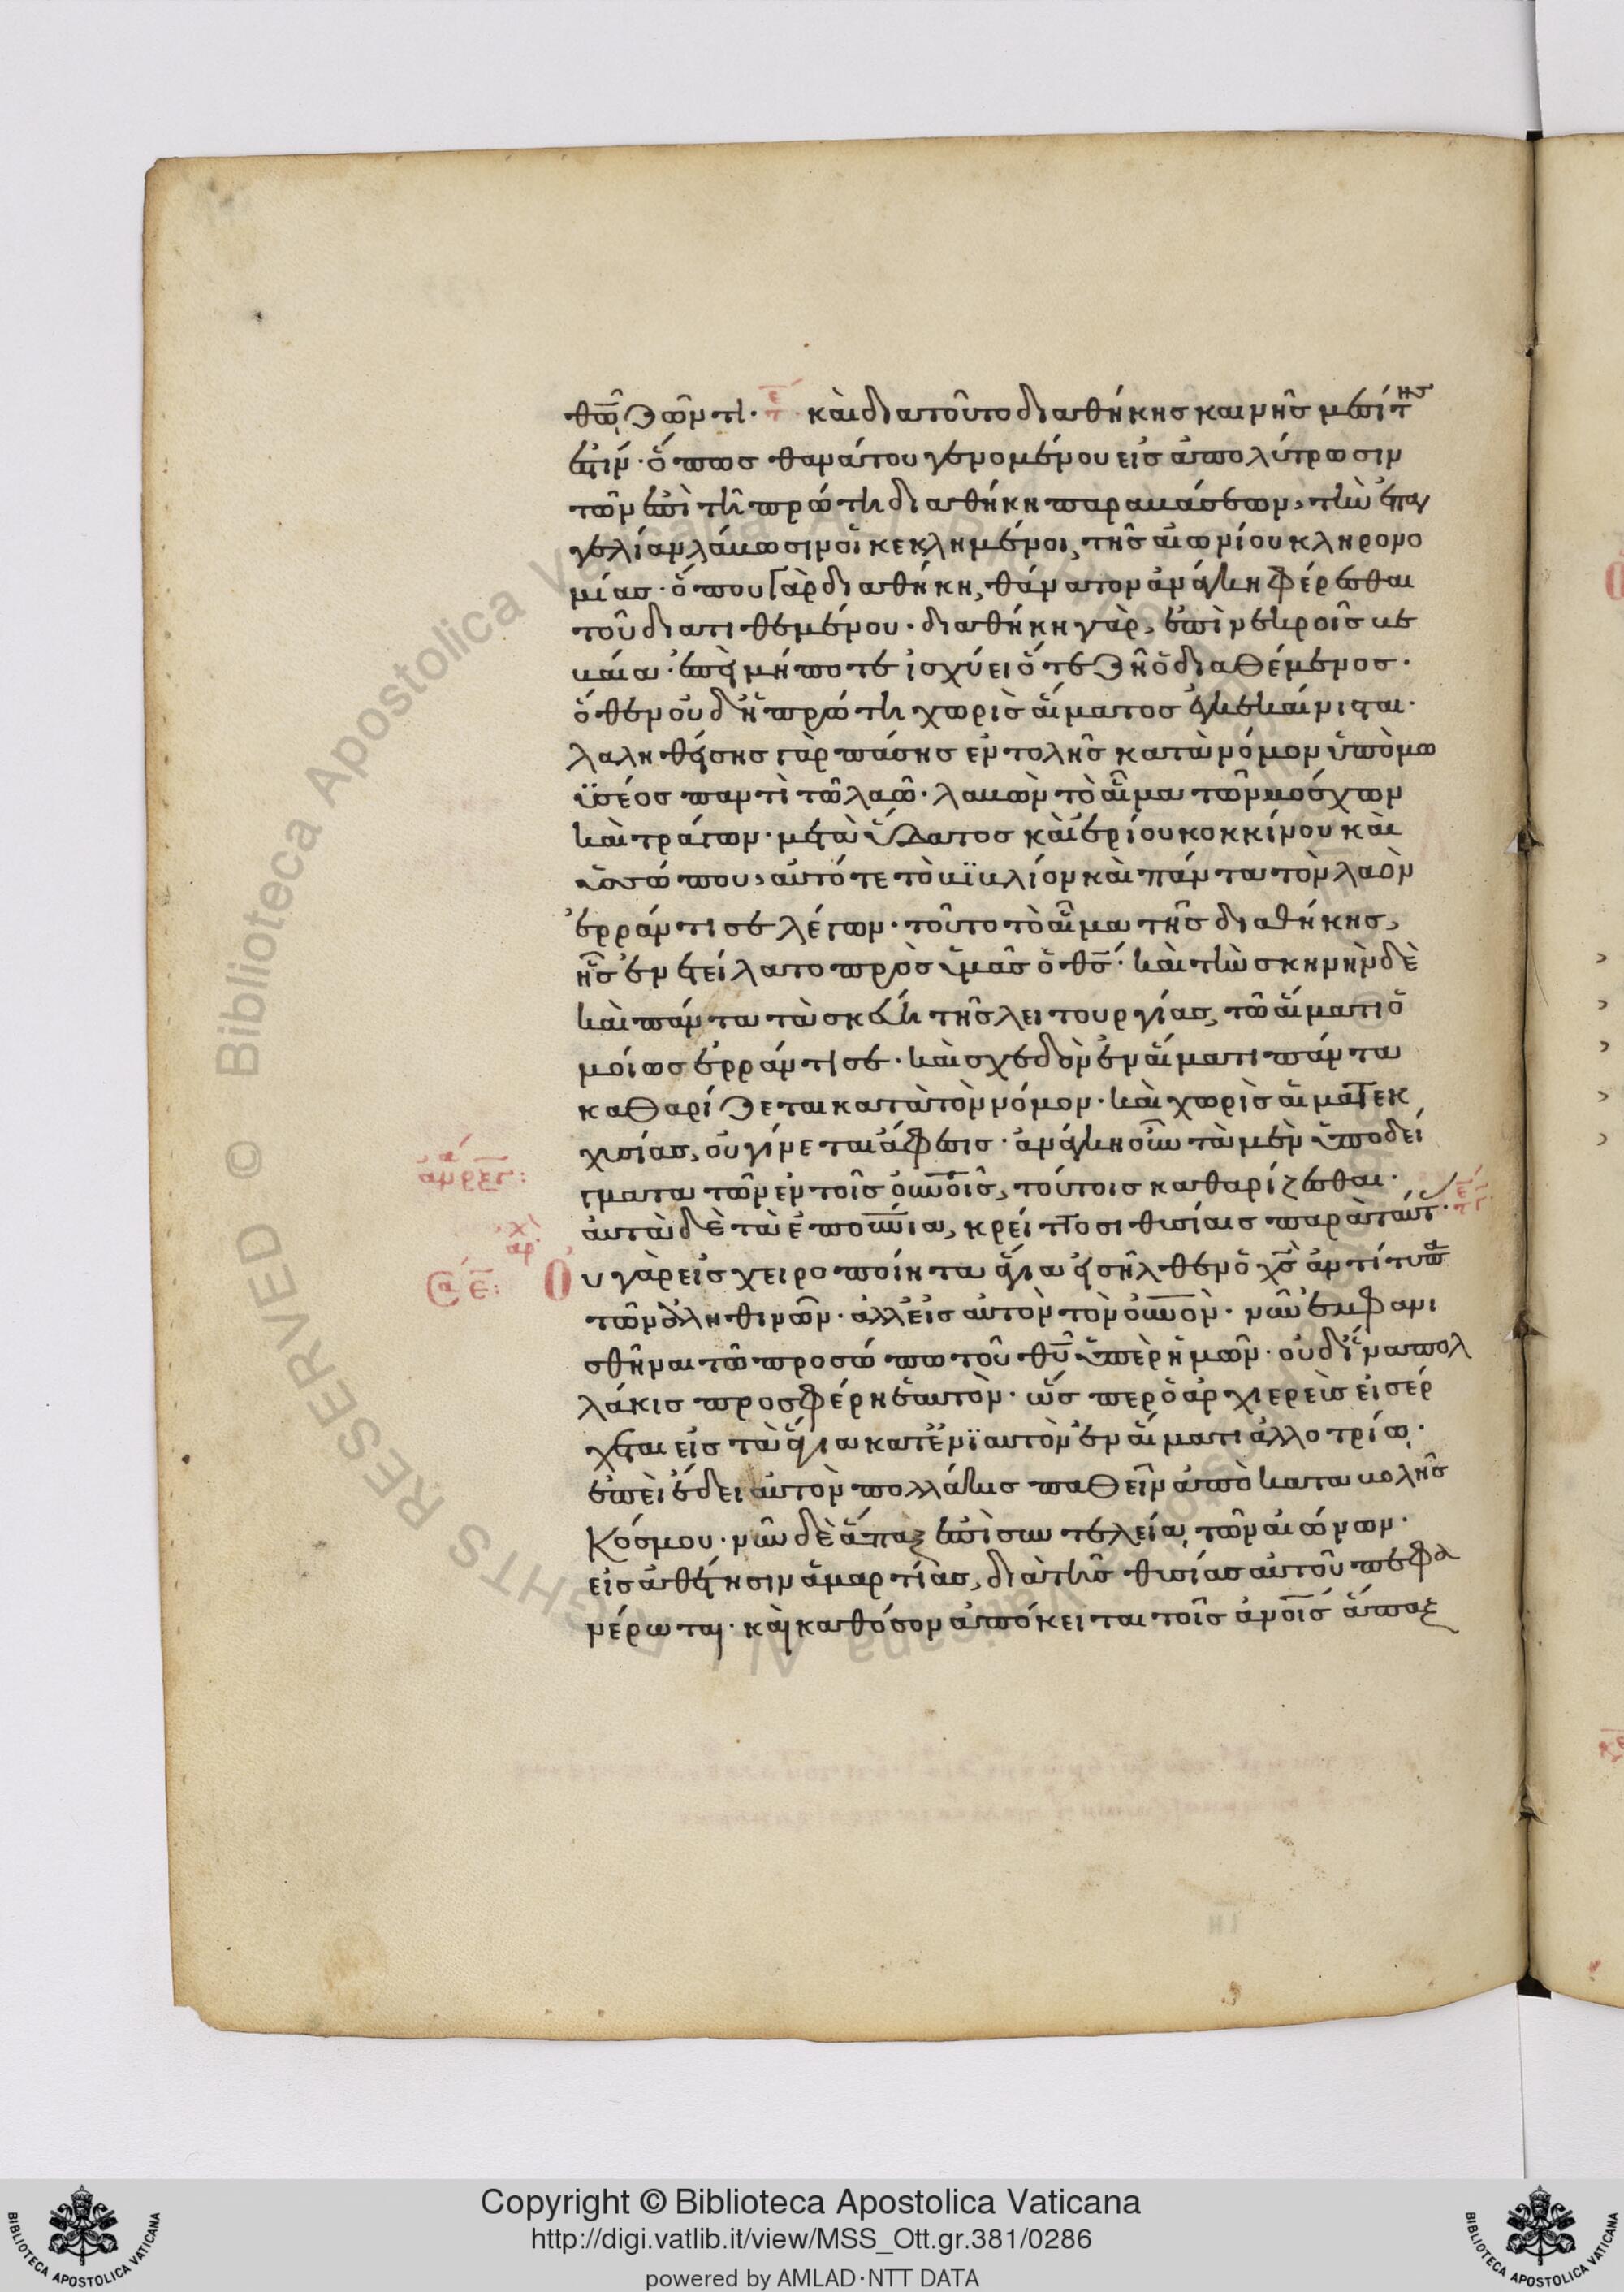 θω̅ ζῶντι· τε̅ καὶ διατοῦτο διαθήκησ καινῆσ μεσίτησ
ἐστίν· ὅπωσ θανάτου γενομένου εἰσ ἀπολύτρωσιν
τῶν ἐπὶ τῆ πρώτη διαθήκη παραβάσεων, τὴν ἐπαγ
γελίαν λάβωσιν οἱ κεκλημένοι, τῆσ αἰωνίου κληρονο
μίασ· ὅπου γὰρ διαθήκη, θάνατον ἀνάγκη φέρεσθαι
τοῦ διατιθεμένου· διαθήκη γὰρ, ἐπὶ νεκροῖσ βε
βαία· ἐπεὶ μήποτε ἰσχύει ὅτε ζῆ ὁ διαθέμενοσ·
ὅθεν οὐδ' ἡ πρώτη χωρὶσ αἵματοσ ἐγκεκαίνισται·
λαληθείσησ γὰρ πάσησ ἐντολῆσ κατὰ νόμον ὑπὸ μω
ϋσέοσ παντὶ τῶ λαῶ· λαβὼν τὸ αἷμα τῶν μόσχων
καὶ τράγων· μετὰ ὕδατοσ καὶ ἐρίου κοκκίνου καὶ
ὑσσώπου, αὐτό τε τὸ βϊβλίον καὶ πάντα τὸν λαὸν
ἐρράντισε λέγων· τοῦτο τὸ αἷμα τῆσ διαθήκησ,
ἧσ ἐνετείλατο πρὸσ ὑμᾶσ ὁ θσ̅· καὶ τὴν σκηνὴν δὲ
καὶ πάντα τὰ σκεύη τῆσ λειτουργίασ, τῶ αἵματι ὁ
μοίωσ ἐρράντισε· καὶ σχεδὸν ἐν αἵματι πάντα
καθαρίζεται κατὰ τὸν νόμον· καὶ χωρὶσ αἱματεκ
χυσίασ, οὐ γίνεται ἄφεσισ· ἀνάγκη οὖν τὰ μὲν ὑποδεί
γματα τῶν ἐν τοῖσ ου̅νοισ, τούτοισ καθαρίζεσθαι·
αὐτὰ δὲ τὰ ἐπου̅νια, κρείττοσι θυσίαισ παρὰ ταύτ· τε̅
Ου γὰρ εἰσ χειροποίητα ἅγια εἰσῆλθεν ὁ χσ̅ ἀντίτυπα
τῶν ἀληθινῶν· ἀλλ' εἰσ αὐτὸν τὸν ου̅νον· νῦν ἐμφανι
σθῆναι τῶ προσώπω τοῦ θυ̅ ὑπὲρ ἡμῶν· οὐδ' ἵνα πολ
λάκισ προσφέρη ἑαυτὸν· ὥσπερ ὁ ἀρχιερεὺσ εἰσέρ
χεται εἰσ τὰ ἅγια κατ' ἐνϊαυτὸν ἐν αἵματι ἀλλοτρίω·
ἐπεὶ ἔδει αὐτὸν πολλάκισ παθεῖν ἀπὸ καταβολῆσ
κόσμου· νῦν δὲ ἅπαξ ἐπὶ συντελεία τῶν αἰώνων·
εἰσ ἀθέτησιν ἁμαρτίασ, διὰ τῆσ θυσίασ αὐτοῦ πεφα
νέρωται· καὶ καθόσον ἀπόκειται τοῖσ ἀνοισ̅ ἅπαξ
Copyright © Biblioteca Apostolica Vaticana
http://digi.vatlib.it/view/MSS_Ott.gr.381/0286
powered by AMLAD·NTT DATA
BIBLIOTECA APOSTOLICA VATICANA
BIBLIOTECA APOSTOLICA VATICANA